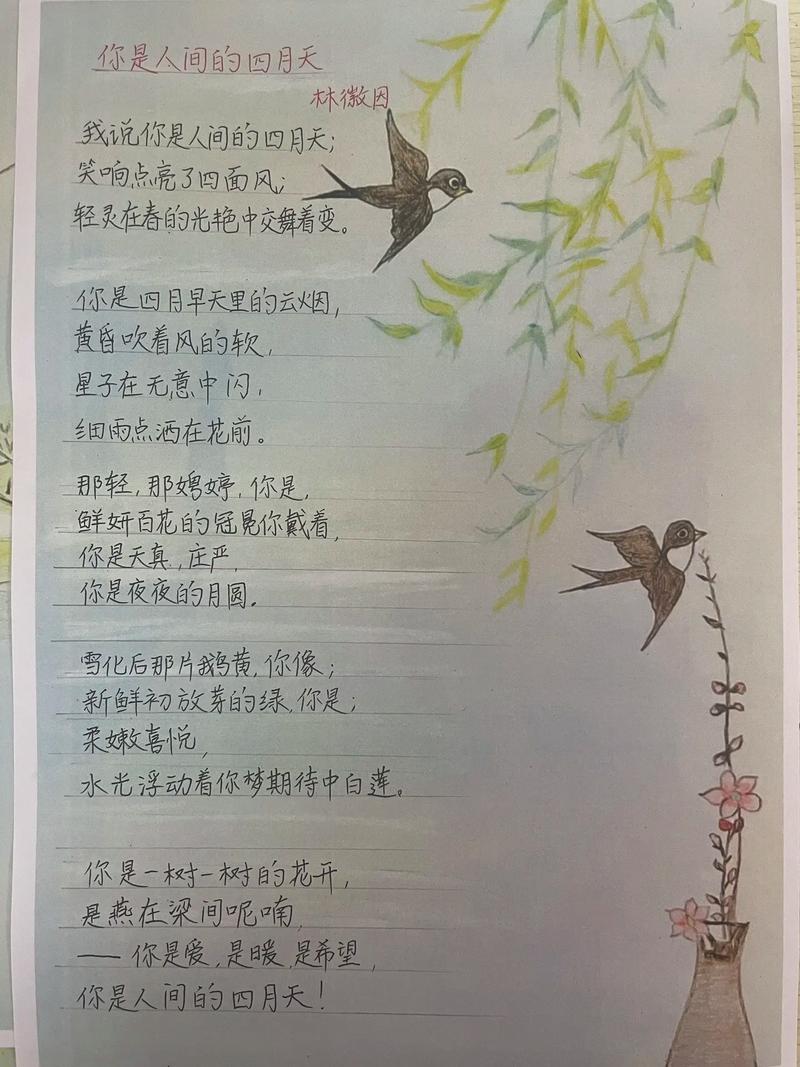 你是人间的四月天
林徽因
我说你是人间的四月天;
笑响点亮了四面风;
轻灵在春的光艳中交舞着变。
你是四月早天里的云烟,
黄昏吹着风的软,
星子在无意中闪,
细雨点洒在花前。
那轻,那娉婷,你是,
鲜妍百花的冠冕你戴着,
你是天真,庄严,
你是夜夜的月圆。
雪化后那片鹅黄,你像;
新鲜初放芽的绿,你是;
柔嫩喜悦,
水光浮动着你梦期待中白莲。
你是一树一树的花开,
是燕在梁间呢喃,
——你是爱,是暖,是希望,
你是人间的四月天!